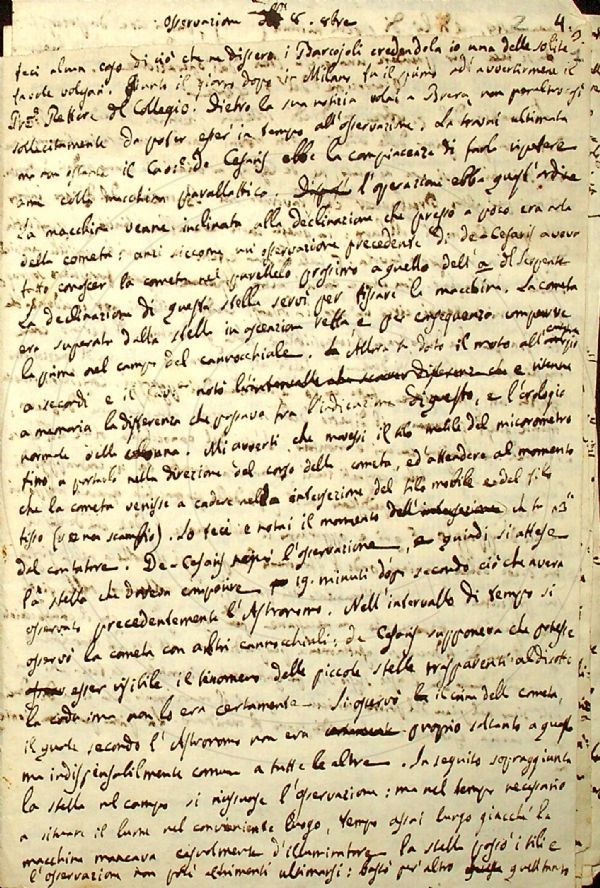 osservazioni 8.bre
4.
feci alcun caso di ciò che ne dissero i credendola io una delle solite
favole volgari. Giunto il giorno dopo in Milano fu il primo ad avvertirmene il
Rettore del Collegio. Dietro la sua notizia volai a Brera non peraltro sì
sollecitamente da poter esser in tempo all'osservazione. La trovai ultimata
ma non ostante il de Cesaris ebbe la compiacenza di farla ripetere
a me colla macchina parallattica. l'operazione ebbe quest'ordine
La macchina venne inclinata alla declinazione che presso a poco era nota
della cometa: anzi siccome un'osservazione precedente di de-Cesaris aveva
fatto conoscer la cometa nel parallelo prossimo a quello dell' α del Serpente
La declinazione di questa stella servì per fissare la macchina. La cometa
era superata dalla stella in ascensione retta e per conseguenza comparve
la prima nel campo del cannocchiale. Allora fu dato il moto all'
a secondi e il notò differenza che e ritenne
a memoria la differenza che passava tra l'indicazione di questo, e l'orologio
normale della colonna. Mi avvertì che movessi il filo mobile del micrometro
fino a portarlo nella direzione del corso della cometa, ed attendere al momento
che la cometa venisse a cadere nella intersezione del filo mobile e del filo
fisso. Lo feci e notai il momento
dal contatore. De-Cesaris l'osservazione, e quindi si attese
la stella che doveva comparire 19. minuti dopo secondo ciò che aveva
osservato precedentemente l'Astronomo. Nell'intervallo di tempo si
osservò la cometa con altri cannocchiali: de Cesaris supponeva che potesse
esser visibile il fenomeno delle piccole stelle trasparenti al di sotto
la coda, ma non lo era certamente. Si osservò la della cometa,
il quale secondo l'Astronomo non era proprio soltanto a questa
ma indispensabilmente comune a tutte le altre. In seguito sopraggiunta
la stella nel campo si riassunse l'osservazione: ma nel tempo necessario
a situare il lume nel conveniente luogo, tempo assai lungo giacché la
macchina mancava casualmente d'illuminatore la stella passò i fili e
l'osservazione non poté altrimenti ultimarsi: bastò per altro quell'tanto